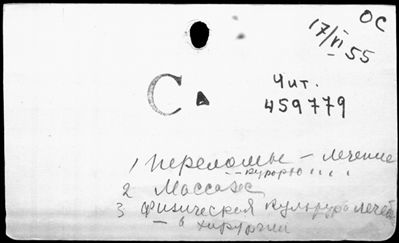 ОС
17/VI 55
С
Чит.
459779
1 Переломы — лечение
-- курорт. " " "
2 Массаж
3 Физическая культура лечеб.
— в хирургии